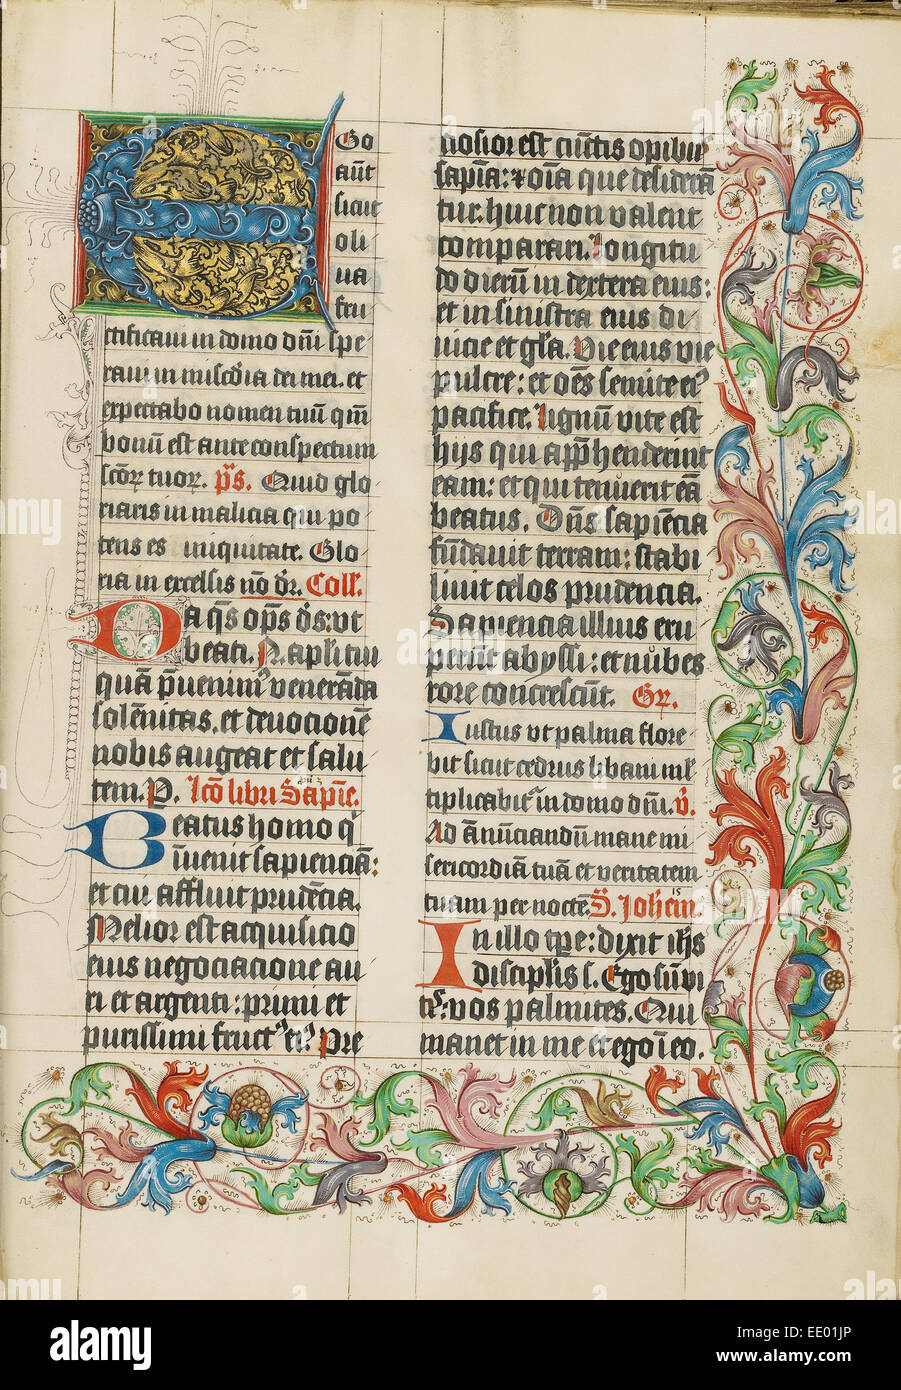 Go
aūt
sicut
oli
ua
fru
ctificaui in domo dn̄i spe
raui in misc̄dia dei mei. et
expectabo nomen tuū qm̄
bonū est ante conspectum
sc̄oꝝ tuoꝝ. p̄s. Quid glo
riaris in malicia qui po
tens es iniquitate. Glo
ria in excelsis nō dr̄. Coll.
Da q̄s op̄s d̄s: vt
beati. N. apl̄i tui
quā p̄uenim⁹ venerāda
solēnitas. et deuocionē
nobis augeat et salu
tem. P. Lc̄o libri Sapīe.
Beatus homo q̇
īuenit sapienciā:
et cui affluit prudēcia.
Melior est acquisicio
eius negociacione au
ri et argenti: primi et
purissimi fruct⁹ ei⁹. Pre
ciosior est cūctis opibus
sapīa: ⁊ oīa que desiderā
tur. huic non valent
comparari. Longitu
do dierū in dextera eius:
et in sinistra eius di
uicie et gl̄a. Vie eius vie
pulcre: et oēs semite ei⁹
pacifice. Lignū vite est
hijs qui app̄henderint
eam: et qui tenuerit eā
beatus. Dn̄s sapiēcia
fūdauit terram: stabi
liuit celos prudencia.
Sapiencia illius eru
perūt abyssi: et nubes
rore concrescūt. Gꝝ.
Iustus vt palma flore
bit sicut cedrus libani ml̄
tiplicabit᷑ in domo dn̄i. v̄.
Ad ānūciandū mane mi
sericordiā tuā et veritatem
tuam per noctē. S. Iohēm.
In illo tp̄re: dixit ih̄s
discipl̄is s. Ego sū vi
tis: vos palmites. Qui
manet in me et ego ī eo.
alamy
alamy
Image ID: EE01JP
www.alamy.com